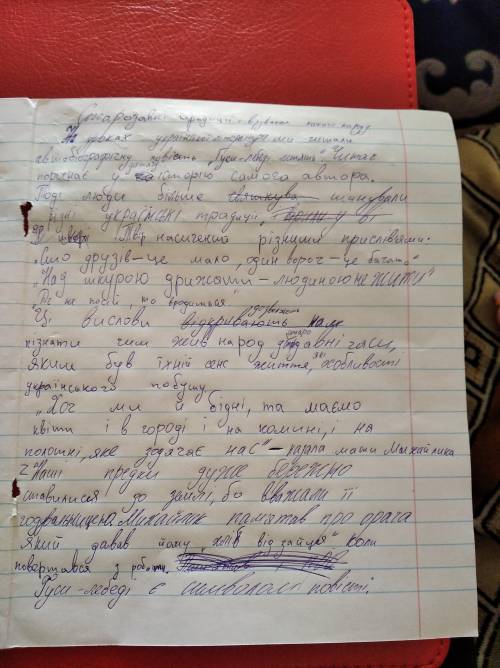 Стародавні традиції і вірування нашого народу
На уроках української літератури ми читали
автобіографічну повість „Гуси-лебеді летять" Читач
поринає у дитячу історію самого автора.
Тоді люди більше шанували
рідні українські традиції,
Твір насичений різними прислівями.
„Сто друзів – це мало, один ворог – це багато"
„Над шкурою дрижати – людиною не жити"
„Де не посій, то вродиться.
Ці вислови дозволяють нам
пізнати чим жив народ у давні часи,
Яким був їхній сенс життя, які особливості
українського побуту
„Хоч ми й бідні, та маємо
квіти і в городі і на комині, і на
полотні, яке зодягає нас" – казала мати Михайлика
Наші предки дуже бережно
ставилися до землі, бо вважали її
годувальницею. Михайлик памʼятав про орача
Який давав йому „хліб від зайця" коли
повертався з роботи.
Гуси-лебеді є символом повісті.